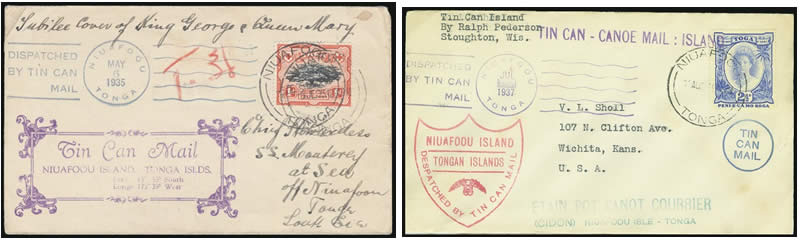 Jubilee Cover of King George & Queen Mary
DISPATCHED
BY TIN CAN
MAIL
NIUAFOOU
MAY
6
1935
TONGA
NIUAFOOU
TONGA
Tin Can Mail
NIUAFOOU ISLAND, TONGA ISLDS.
South
West
Chief
S.S. Monterey
at Sea
off Niuafoou
Tonga
South Sea
Tin Can Island
By Ralph Pederson
Stoughton, Wis.
TIN CAN - CANOE MAIL : ISLAND
DISPATCHED
BY TIN CAN
MAIL
NIUAFOOU
1937
TONGA
TOGA
2½
NIUAFOOU
TONGA
V. L. Sholl
107 N. Clifton Ave.
Wichita, Kans.
U. S. A.
TIN
CAN
MAIL
NIUAFOOU ISLAND
TONGAN ISLANDS
DESPATCHED BY TIN CAN MAIL
ETAIN POT CANOT COURRIER
NIUAFOOU ISLE - TONGA